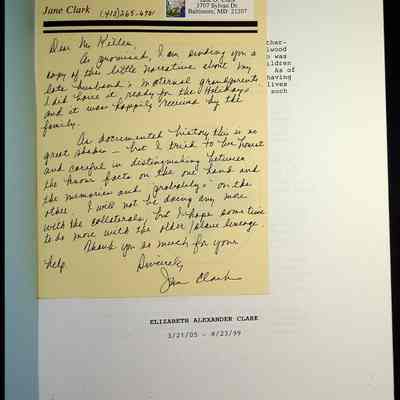 Jane Clark
(410) 265-
3707 Sylvan Dr
Baltimore, MD 21207
Dear Mr
As promised, I am sending you a
copy of this little narrative about my
late husband's maternal grandparents
I did have it ready for the Holidays
and it was happily received by the
family.
As documented history this is no
great shakes - but I tried to be honest
and careful in distinguishing between
the known facts on the one hand and
the memories and "probablys" on the
other. I will not be doing any more
with the collaterals, but I hope some time
to do more with the older /slave lineage.
Thank you so much for your
help.
Sincerely,
Jane Clark
ther-
lwood
was
ildren
As of
having
lives
such
ELIZABETH ALEXANDER CLARK
3/21/05 - 8/23/99